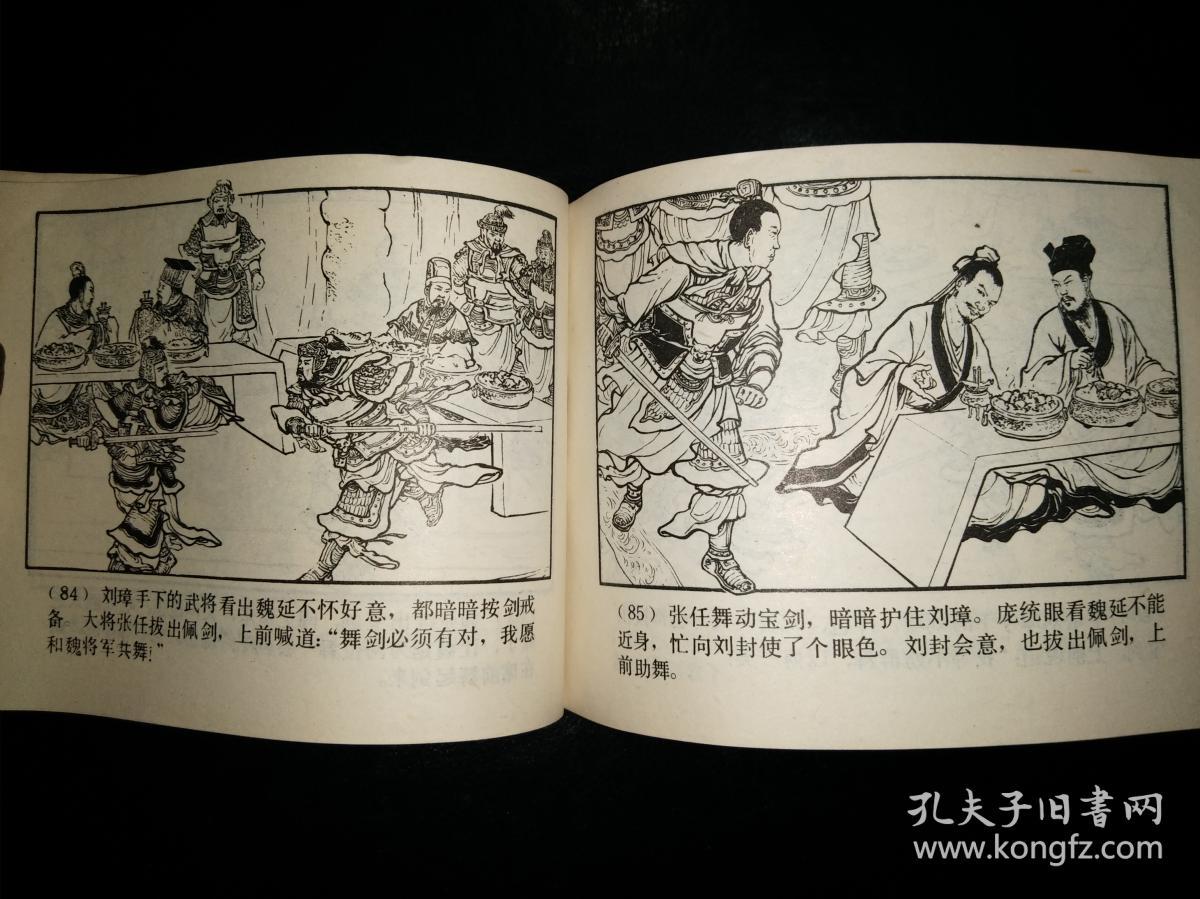 (84) 刘璋手下的武将看出魏延不怀好意，都暗暗按剑戒
备。大将张任拔出佩剑，上前喊道：“舞剑必须有对，我愿
和魏将军共舞！”
(85) 张任舞动宝剑，暗暗护住刘璋。庞统眼看魏延不能
近身，忙向刘封使了个眼色。刘封会意，也拔出佩剑，上
前助舞。
孔夫子旧書网
www.kongfz.com